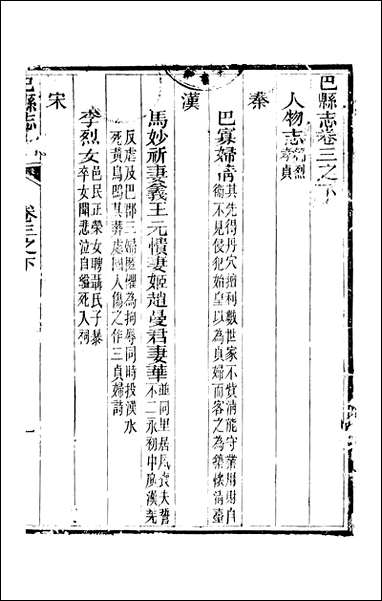 巴縣志卷三之下
人物志 節烈
孝貞
秦
巴寡婦清 其先得丹穴擅利數世家不貲清能守業用財自
衛不見侵犯始皇以為貞婦而客之為築懷清臺
漢
馬妙祈妻義王元憒妻姬趙曼君妻華 並同里居夙喪夫誓
不二永初中廣漢羌
反虐及巴郡三婦懼為拘辱同時投漢水
死黄鳥鳴其葬處國人傷之作三貞婦詩
宋
李烈女 邑民正榮女聘聶氏子暴
卒女聞悲泣自縊死入祠
巴縣志
卷三之下
一